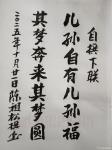 自撰下联
儿孙自有儿孙福
其梦奔来其梦圆
二〇二五年十月廿日陈祖松撰书